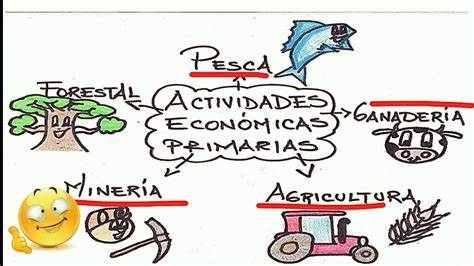 PESCA
FORESTAL
ACTIVIDADES
ECONÓMICAS
PRIMARIAS
GANADERÍA
MINERÍA
AGRICULTURA